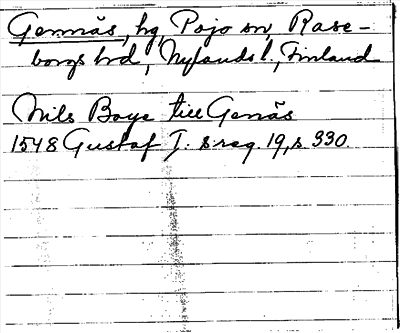 Gennäs, hg, Pojo sn, Rase-
borgs hrd, Nylands l., Finland
Nils Boye till Gennäs
1548 Gustaf I. s reg. 19, s 330